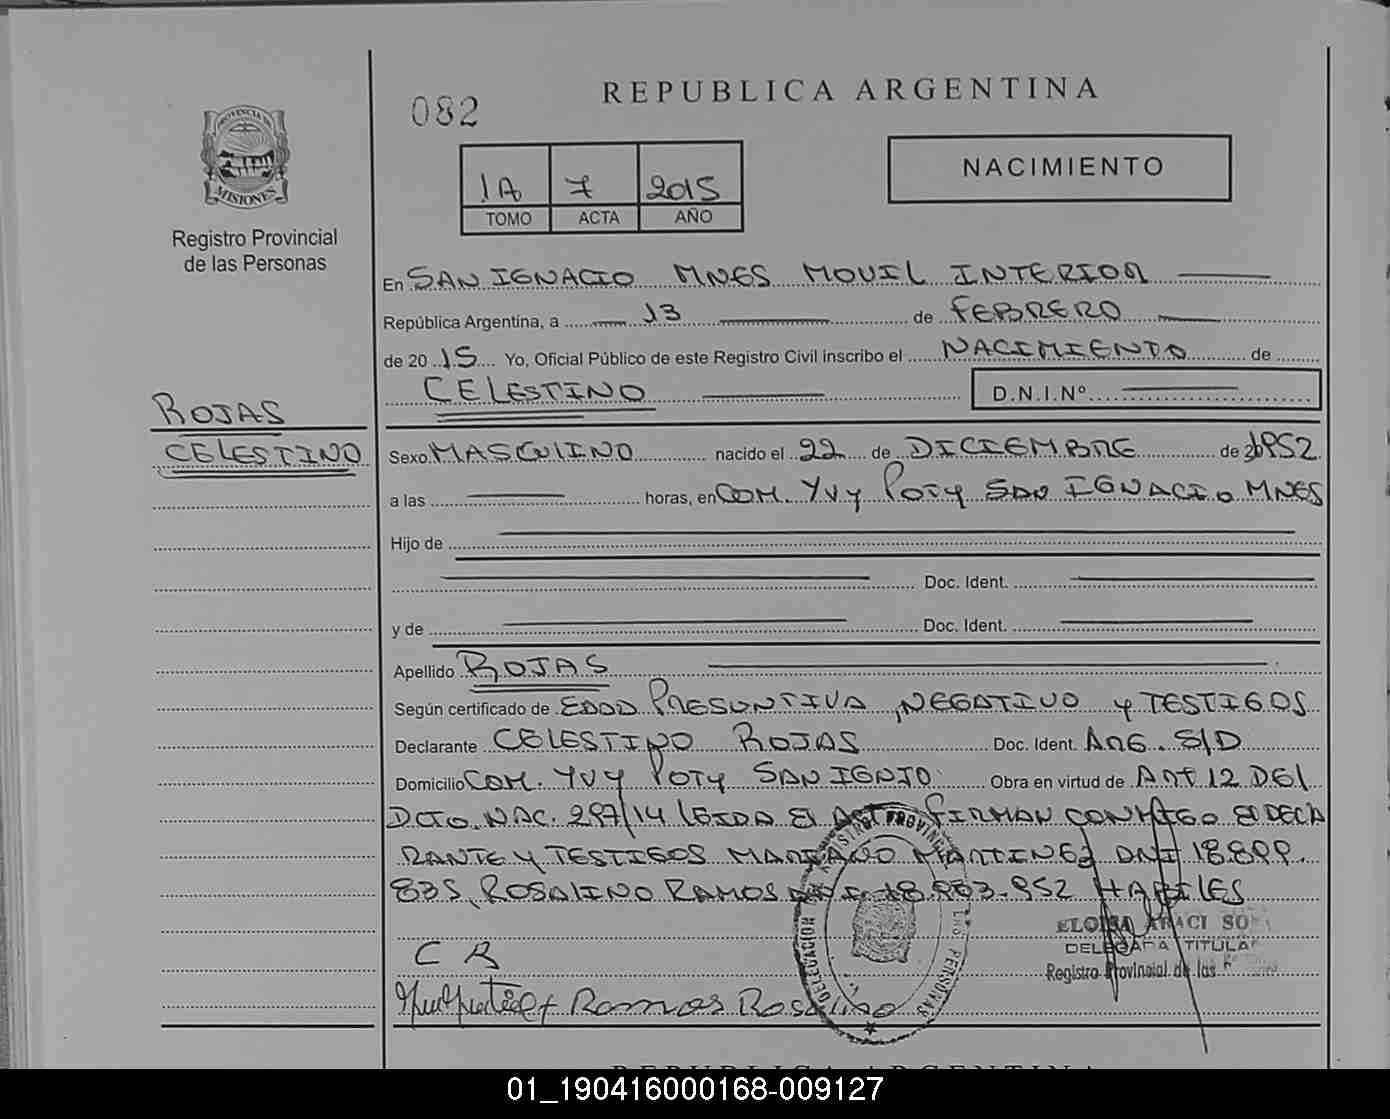 082
REPUBLICA ARGENTINA
PROVINCIA DE
MISIONES
Registro Provincial
de las Personas
1A 7 2015
TOMO ACTA AÑO
NACIMIENTO
En SAN IGNACIO MNES MOVIL INTERIOR
República Argentina, a 13 de FEBRERO
de 20 15 Yo, Oficial Público de este Registro Civil inscribo el NACIMIENTO de
CELESTINO D.N.I.Nº
ROJAS
CELESTINO
Sexo MASCULINO nacido el 22 de DICIEMBRE de 1952
a las horas, en COM. YVY POTY SAN IGNACIO MNES
Hijo de
Doc. Ident.
y de Doc. Ident.
Apellido ROJAS
Según certificado de EDAD PRESUNTIVA, NEGATIVO y TESTIGOS
Declarante CELESTINO ROJAS Doc. Ident. ARG. S/D
Domicilio COM. YVY POTY SAN IGNIO Obra en virtud de ART 12 DEL
DCTO. NAC. 297/14 LEIDA El ACTA FIRMAN CONMIGO El DECLA
RANTE y TESTIGOS MARIANO MARTINEZ DNI 18.899.
835, ROSALINO RAMOS DNI 18.863.952 HABILES
DELEGACION DEL REGISTRO PROVINCIAL DE LAS PERSONAS
ELOISA ARACI
DELEGADA TITULAR
Registro Provincial de las
C R
Ramos Rosalino
REPUBLICA ARGENTINA
01_190416000168-009127